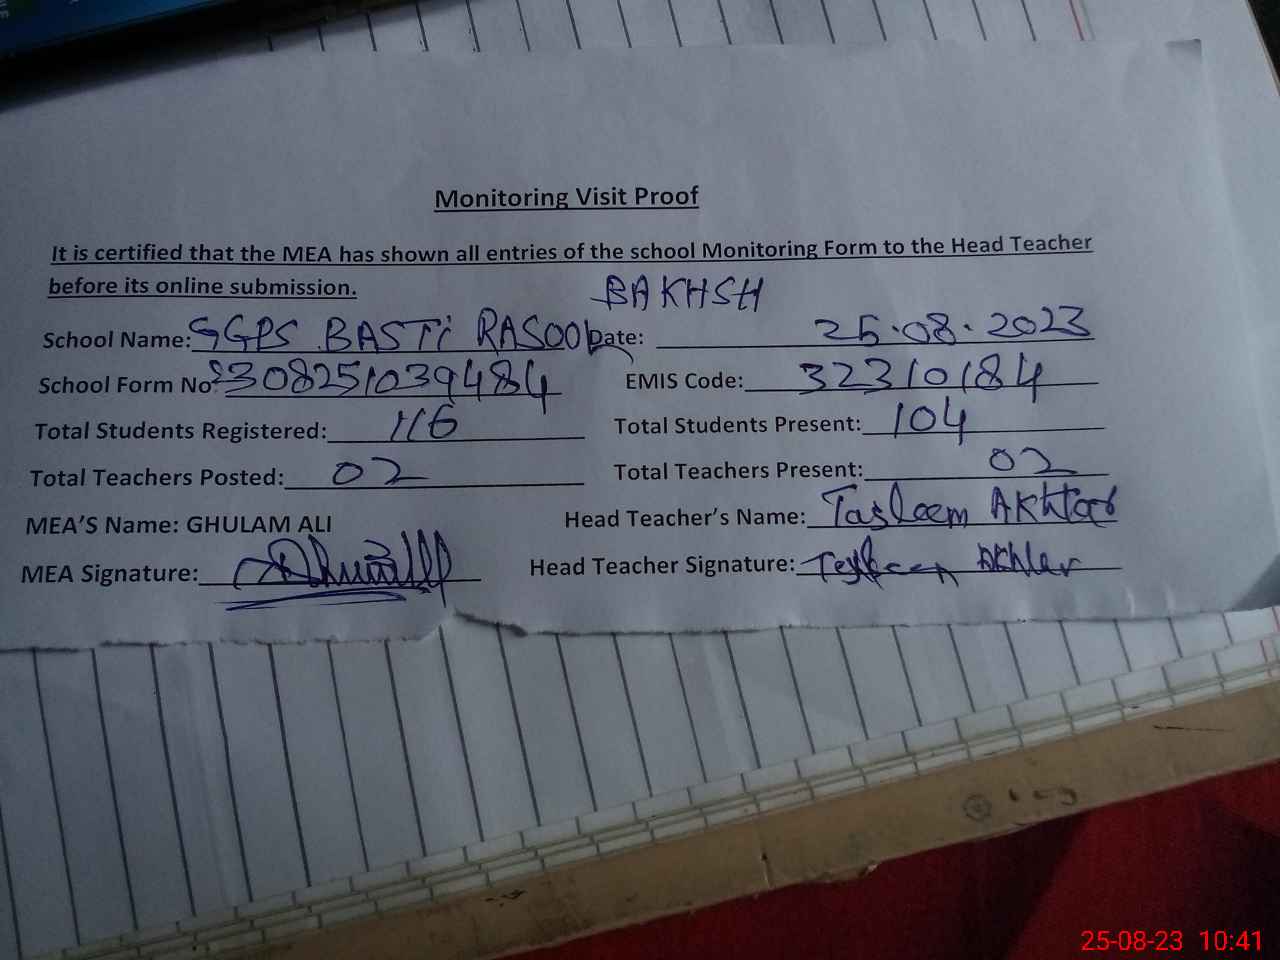 Monitoring Visit Proof
It is certified that the MEA has shown all entries of the school Monitoring Form to the Head Teacher
before its online submission.
BAKHSH
School Name: GGPS BASTi RASOOL Date: 25.08.2023
School Form No: 2308251039484 EMIS Code: 32310184
Total Students Registered: 116 Total Students Present: 104
Total Teachers Posted: 02 Total Teachers Present: 02
MEA'S Name: GHULAM ALI Head Teacher's Name: Tasleem AKhtar
MEA Signature: Head Teacher Signature: Tasleem Akhter
25-08-23 10:41